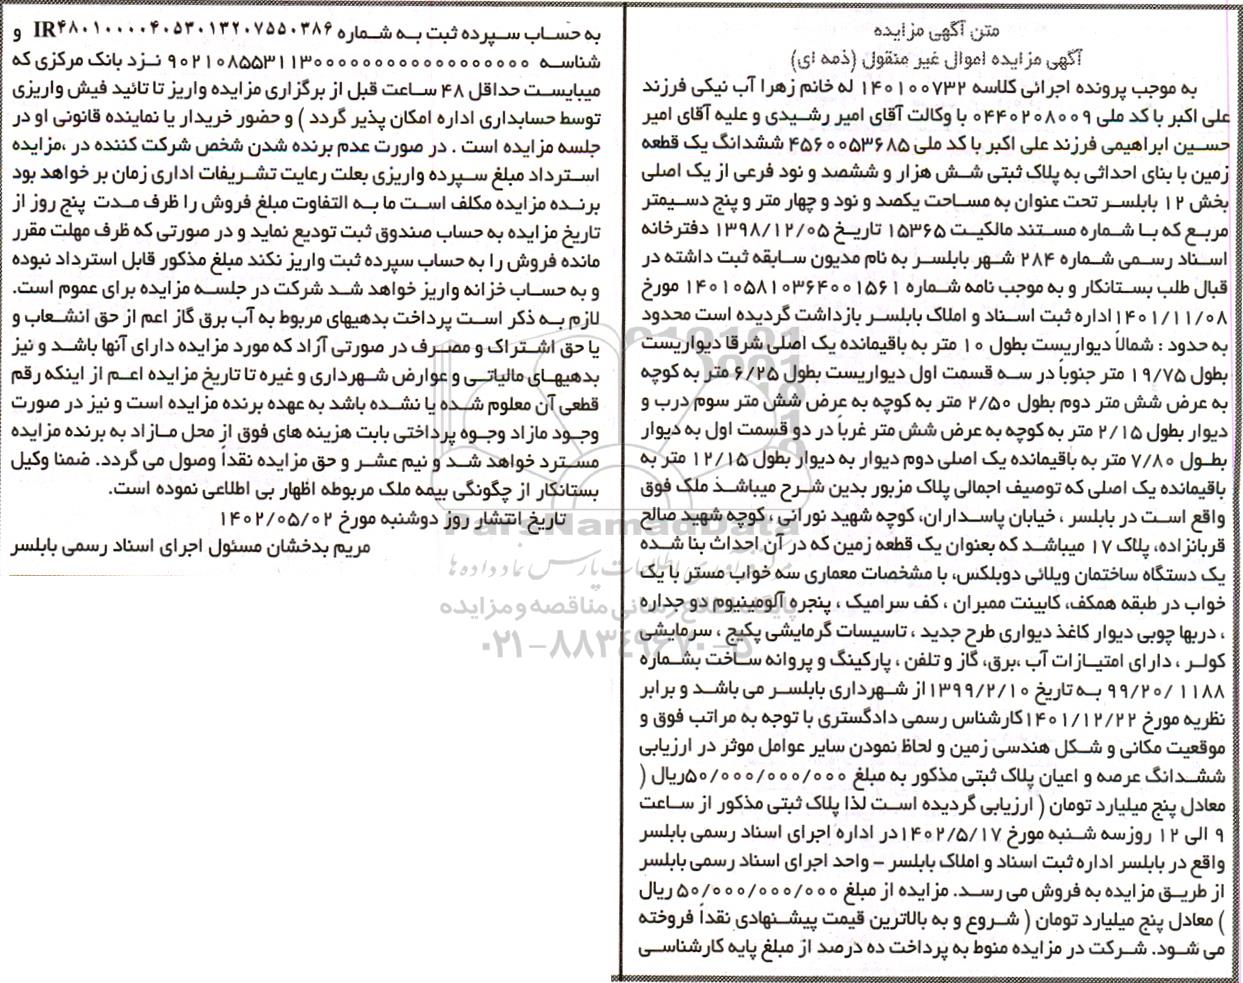 متن آگهی مزایده
آگهی مزایده اموال غیر منقول (ذمه ای)
به موجب پرونده اجرائی کلاسه ۱۴۰۱۰۰۷۳۲ له خانم زهرا آب نیکی فرزند
علی اکبر با کد ملی ۰۴۴۰۲۰۸۰۰۹ با وکالت آقای امیر رشیدی و علیه آقای امیر
حسین ابراهیمی فرزند علی اکبر با کد ملی ۴۵۶۰۰۵۳۶۸۵ ششدانگ یک قطعه
زمین با بنای احداثی به پلاک ثبتی شش هزار و ششصد و نود فرعی از یک اصلی
بخش ۱۲ بابلسر تحت عنوان به مساحت یکصد و نود و چهار متر و پنج دسیمتر
مربع که با شماره مستند مالکیت ۱۵۳۶۵ تاریخ ۱۳۹۸/۱۲/۰۵ دفترخانه
اسناد رسمی شماره ۲۸۴ شهر بابلسر به نام مدیون سابقه ثبت داشته در
قبال طلب بستانکار و به موجب نامه شماره ۱۴۰۱۰۵۸۱۰۳۶۴۰۰۱۵۶۱ مورخ
۱۴۰۱/۱۱/۰۸اداره ثبت اسناد و املاک بابلسر بازداشت گردیده است محدود
به حدود : شمالاً دیواریست بطول ۱۰ متر به باقیمانده یک اصلی شرقا دیواریست
بطول ۱۹/۷۵ متر جنوباً در سه قسمت اول دیواریست بطول ۶/۲۵ متر به کوچه
به عرض شش متر دوم بطول ۲/۵۰ متر به کوچه به عرض شش متر سوم درب و
دیوار بطول ۲/۱۵ متر به کوچه به عرض شش متر غرباً در دو قسمت اول به دیوار
بطول ۷/۸۰ متر به باقیمانده یک اصلی دوم دیوار به دیوار بطول ۱۲/۱۵ متر به
باقیمانده یک اصلی که توصیف اجمالی پلاک مزبور بدین شرح میباشد ملک فوق
واقع است در بابلسر ، خیابان پاسداران، کوچه شهید نورانی ، کوچه شهید صالح
قربانزاده، پلاک ۱۷ میباشد که بعنوان یک قطعه زمین که در آن احداث بنا شده
یک دستگاه ساختمان ویلائی دوبلکس، با مشخصات معماری سه خواب مستر با یک
خواب در طبقه همکف، کابینت ممبران ، کف سرامیک ، پنجره آلومینیوم دو جداره
، دربها چوبی دیوار کاغذ دیواری طرح جدید ، تاسیسات گرمایشی پکیج ، سرمایشی
کولر ، دارای امتیازات آب ،برق، گاز و تلفن ، پارکینگ و پروانه ساخت بشماره
۱۱۸۸ /۹۹/۲۰ به تاریخ ۱۳۹۹/۲/۱۰از شهرداری بابلسر می باشد و برابر
نظریه مورخ ۱۴۰۱/۱۲/۲۲کارشناس رسمی دادگستری با توجه به مراتب فوق و
موقعیت مکانی و شکل هندسی زمین و لحاظ نمودن سایر عوامل موثر در ارزیابی
ششدانگ عرصه و اعیان پلاک ثبتی مذکور به مبلغ ۵۰/۰۰۰/۰۰۰/۰۰۰ریال (
معادل پنج میلیارد تومان ( ارزیابی گردیده است لذا پلاک ثبتی مذکور از ساعت
۹ الی ۱۲ روزسه شنبه مورخ ۱۴۰۲/۵/۱۷در اداره اجرای اسناد رسمی بابلسر
واقع در بابلسر اداره ثبت اسناد و املاک بابلسر – واحد اجرای اسناد رسمی بابلسر
از طریق مزایده به فروش می رسد. مزایده از مبلغ ۵۰/۰۰۰/۰۰۰/۰۰۰ ریال
) معادل پنج میلیارد تومان ( شروع و به بالاترین قیمت پیشنهادی نقداً فروخته
می شود. شرکت در مزایده منوط به پرداخت ده درصد از مبلغ پایه کارشناسی
به حساب سپرده ثبت به شماره IR۴۸۰۱۰۰۰۰۴۰۵۳۰۱۳۲۰۷۵۵۰۳۸۶ و
شناسه ۹۰۲۱۰۸۵۵۳۱۱۳۰۰۰۰۰۰۰۰۰۰۰۰۰۰۰۰۰ نزد بانک مرکزی که
میبایست حداقل ۴۸ ساعت قبل از برگزاری مزایده واریز تا تائید فیش واریزی
توسط حسابداری اداره امکان پذیر گردد ) و حضور خریدار یا نماینده قانونی او در
جلسه مزایده است . در صورت عدم برنده شدن شخص شرکت کننده در ،مزایده
استرداد مبلغ سپرده واریزی بعلت رعایت تشریفات اداری زمان بر خواهد بود
برنده مزایده مکلف است ما به التفاوت مبلغ فروش را ظرف مدت پنج روز از
تاریخ مزایده به حساب صندوق ثبت تودیع نماید و در صورتی که ظرف مهلت مقرر
مانده فروش را به حساب سپرده ثبت واریز نکند مبلغ مذکور قابل استرداد نبوده
و به حساب خزانه واریز خواهد شد شرکت در جلسه مزایده برای عموم است.
لازم به ذکر است پرداخت بدهیهای مربوط به آب برق گاز اعم از حق انشعاب و
یا حق اشتراک و مصرف در صورتی آزاد که مورد مزایده دارای آنها باشد و نیز
بدهیهای مالیاتی و عوارض شهرداری و غیره تا تاریخ مزایده اعم از اینکه رقم
قطعی آن معلوم شده یا نشده باشد به عهده برنده مزایده است و نیز در صورت
وجود مازاد وجوه پرداختی بابت هزینه های فوق از محل مازاد به برنده مزایده
مسترد خواهد شد و نیم عشر و حق مزایده نقداً وصول می گردد. ضمنا وکیل
بستانکار از چگونگی بیمه ملک مربوطه اظهار بی اطلاعی نموده است.
تاریخ انتشار روز دوشنبه مورخ ۱۴۰۲/۰۵/۰۲
مریم بدخشان مسئول اجرای اسناد رسمی بابلسر
ParsNamadData
پایگاه اطلاع رسانی مناقصه و مزایده
۰۲۱-۸۸۳۴۹۶۷۰-۵